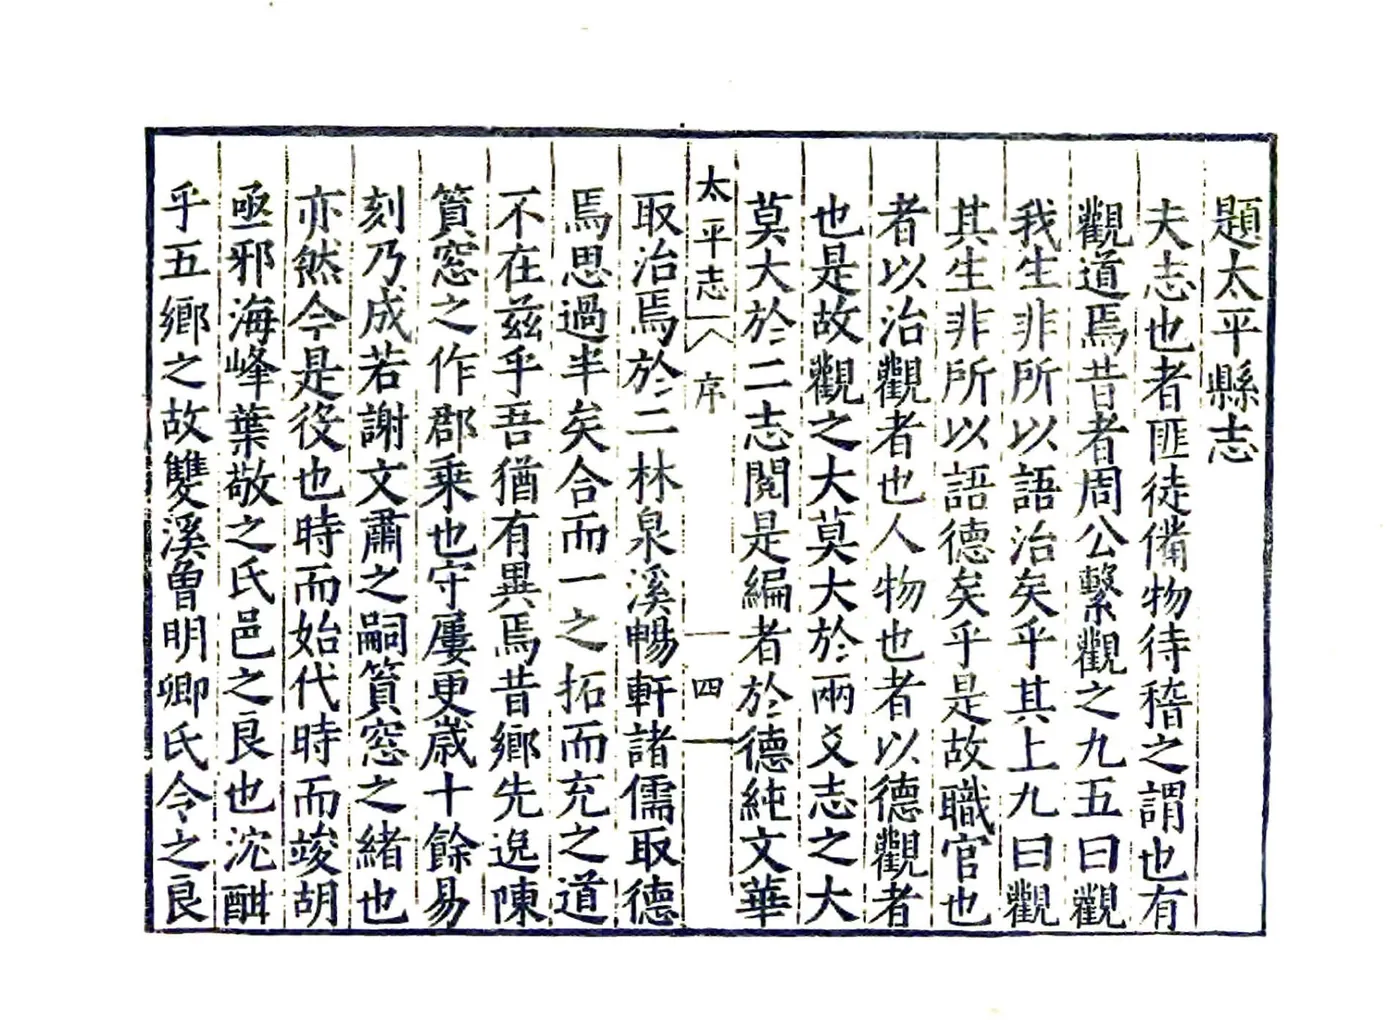 題太平縣志
夫志也者匪徒備物待稽之謂也有
觀道焉昔者周公繫觀之九五曰觀
我生非所以語治矣乎其上九曰觀
其生非所以語德矣乎是故職官也
者以治觀者也人物也者以德觀者
也是故觀之大莫大於兩爻志之大
莫大於二志閱是編者於德純文華
太平志 序 四
取治焉於二林泉溪暢軒諸儒取德
焉思過半矣合而一之拓而充之道
不在兹乎吾猶有異焉昔鄉先逸陳
篔窓之作郡乘也守屢更嵗十餘易
刻乃成若謝文肅之嗣篔窓之緒也
亦然今是役也時而始代時而竣胡
亟邪海峰葉敬之氏邑之良也沱酣
乎五鄉之故雙溪曾明卿氏令之良